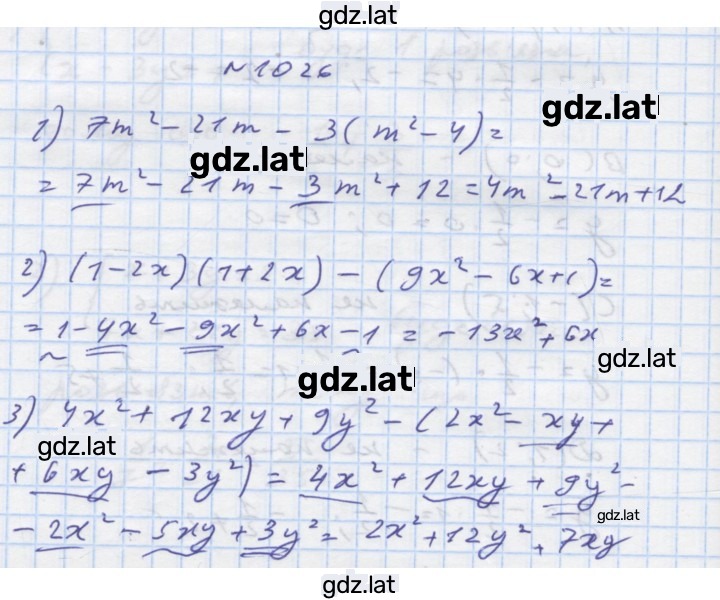 gdz.lat
№1026
gdz.lat
1) 7m² - 21m - 3(m² - 4) =
gdz.lat
= 7m² - 21m - 3m² + 12 = 4m² - 21m + 12
2) (1 - 2x)(1 + 2x) - (9x² - 6x + 1) =
= 1 - 4x² - 9x² + 6x - 1 = -13x² + 6x
gdz.lat
gdz.lat
3) 4x² + 12xy + 9y² - (2x² - xy +
gdz.lat
+ 6xy - 3y²) = 4x² + 12xy + 9y² -
gdz.lat
- 2x² - 5xy + 3y² = 2x² + 12y² + 7xy
gdz.lat